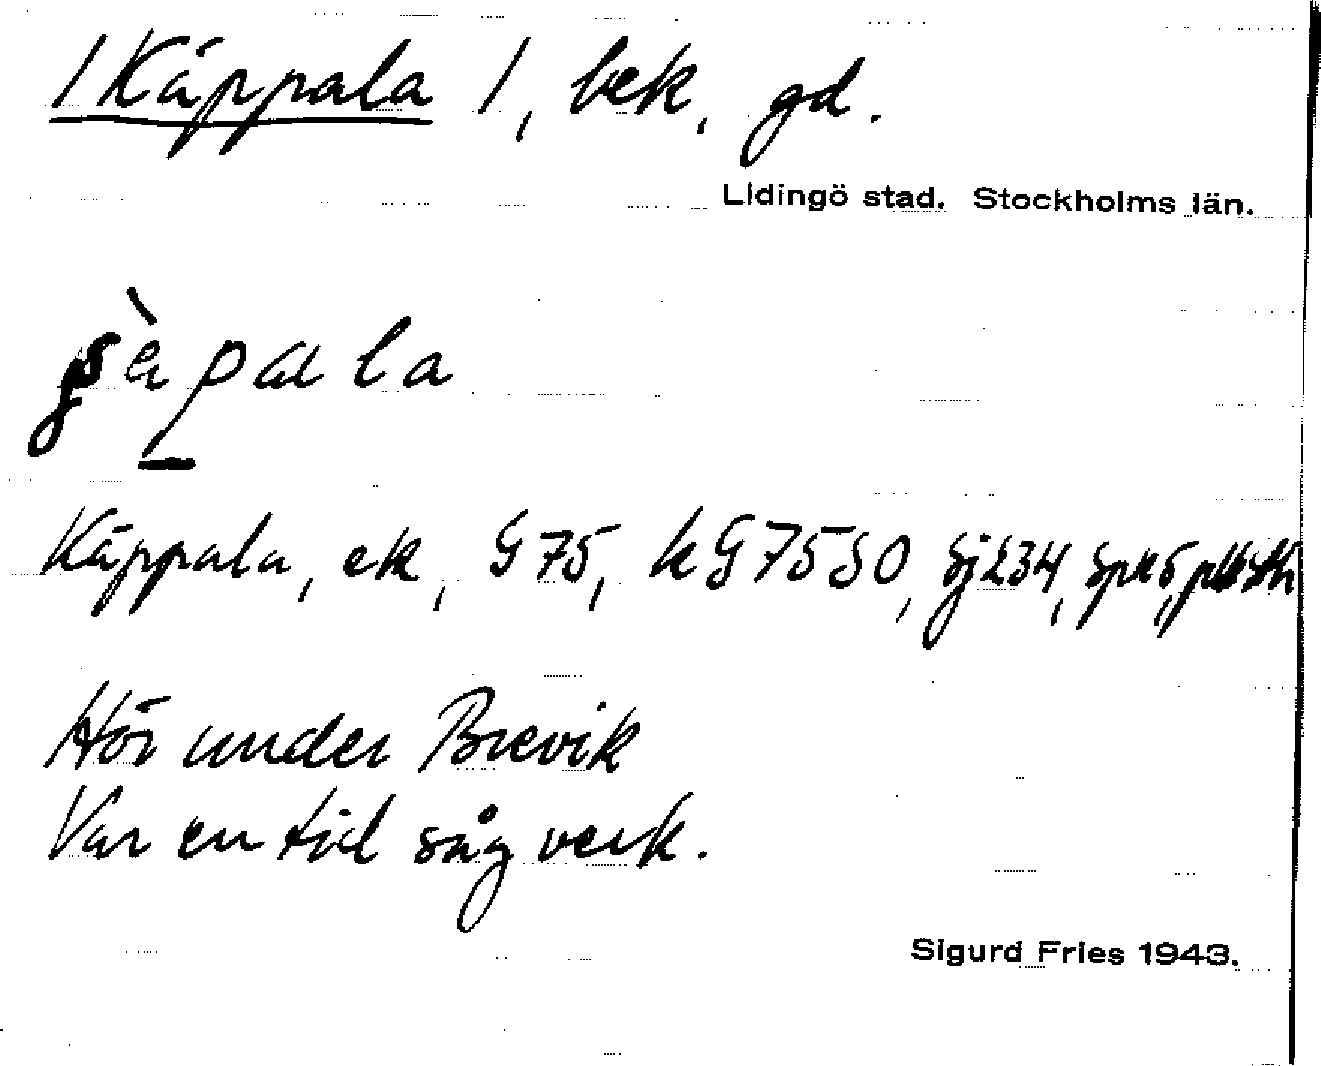 /Käppala /, bek, gd.
Lidingö stad. Stockholms län.
Käppala, ek, G 75, kG7550, Sj234,
Hör under Brevik
Var en tid sågverk.
Sigurd Fries 1943.